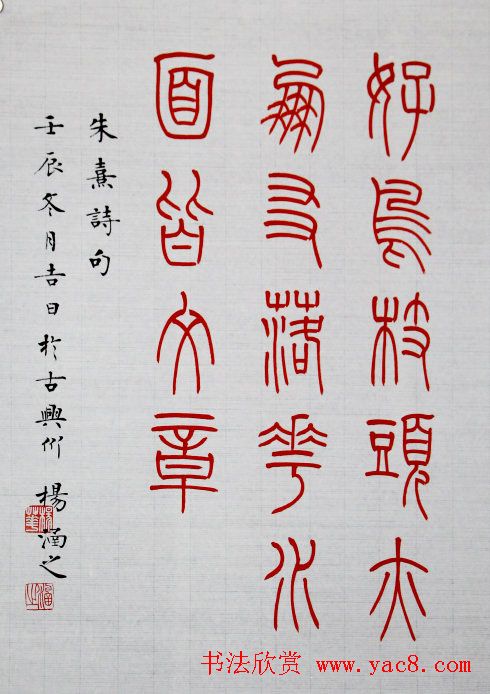 好鳥枝頭亦
朋友落花水
面皆文章
朱熹詩句
壬辰冬月吉日於古興州 楊涵之
书法欣赏 www.yac8.com